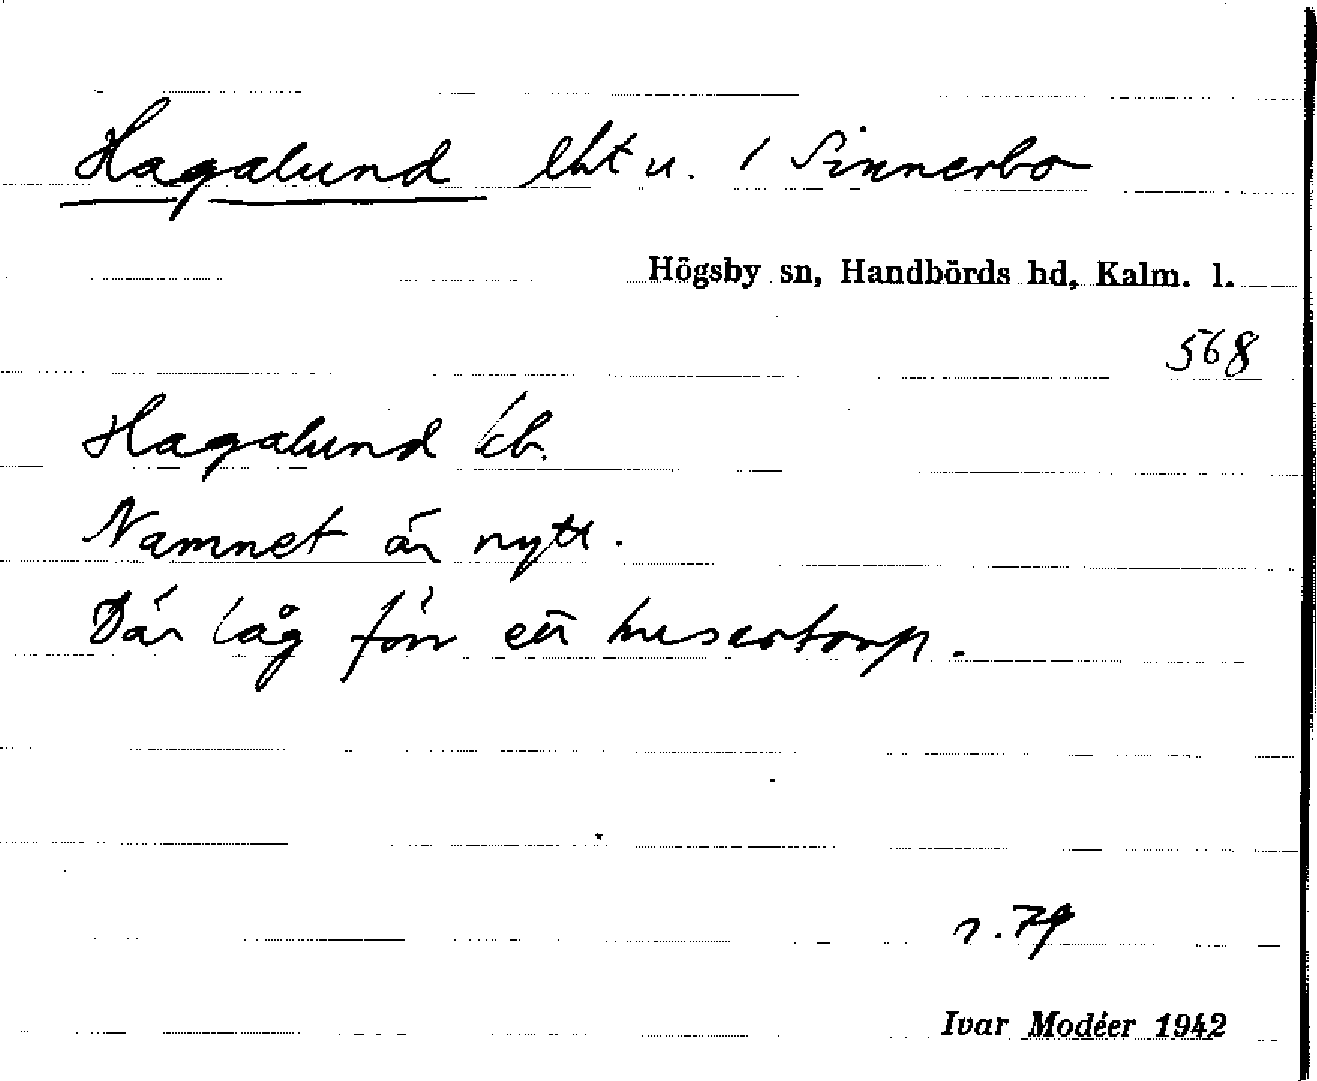 Hagalund lht u. / Sinnerbo
Högsby sn, Handbörds hd, Kalm. l.
568
Hagalund kb.
Namnet är nytt.
Där låg förr ett husartorp.
r. 79
Ivar Modéer 1942